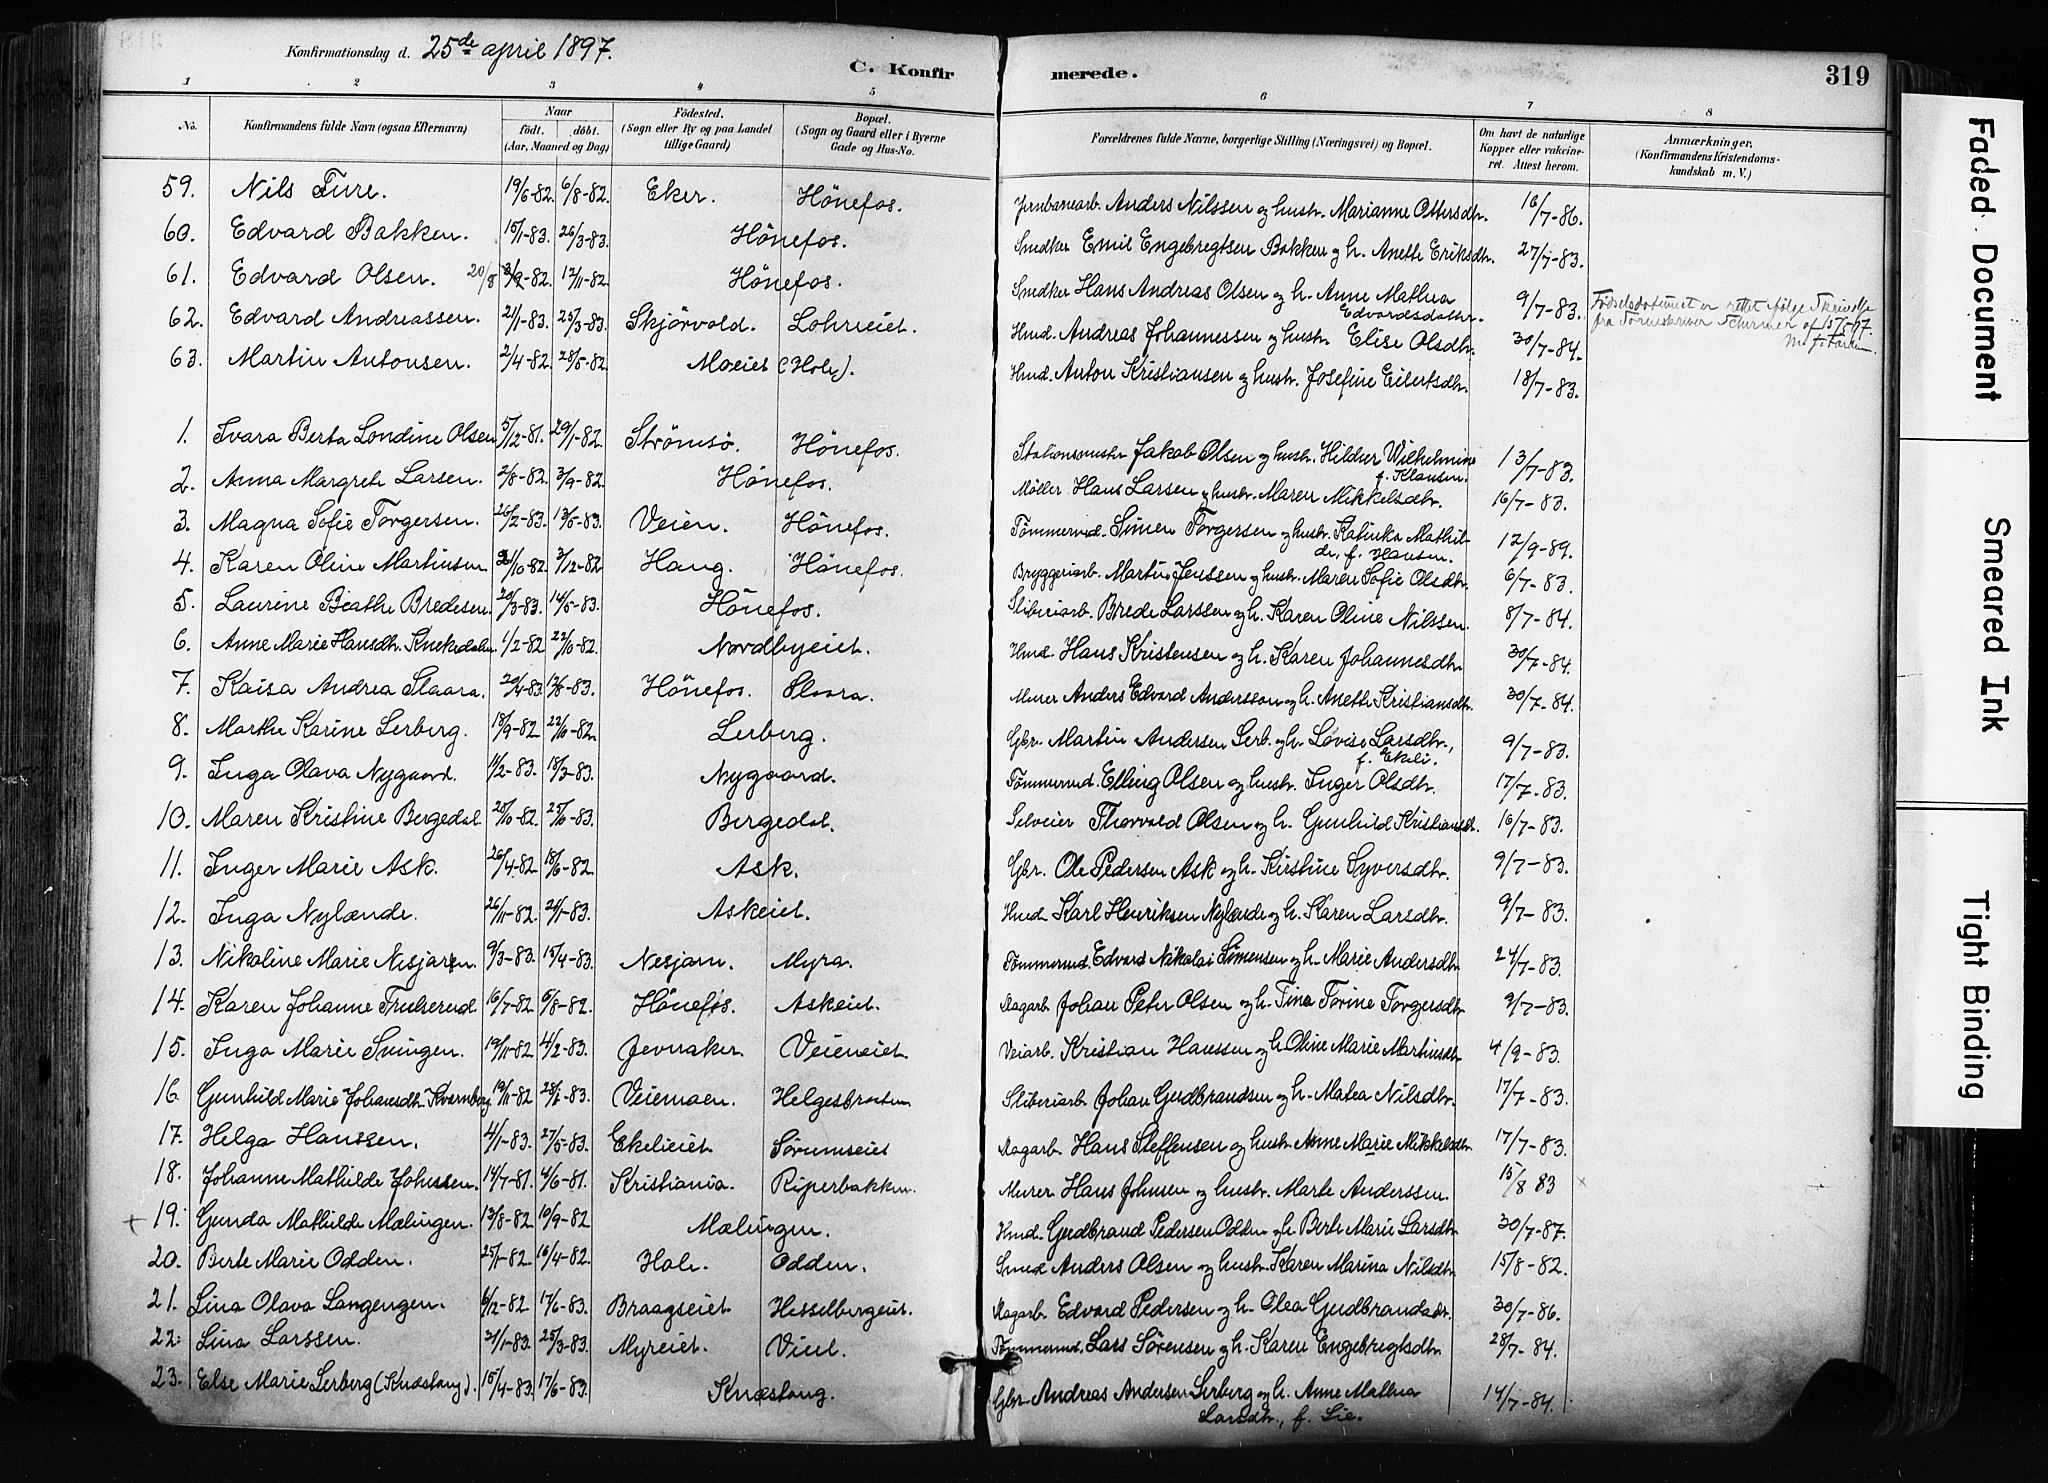 Konfirmationsdag d. 25de april 1897.
C. Konfirmerede.
319
1 2 3 4 5 6 7 8
No.
Konfirmandens fulde Navn (ogsaa Efternavn)
Naar
født. døbt.
(Aar, Maaned og Dag)
Fødested.
(Sogn eller By og paa Landet tillige Gaard)
Bopæl.
(Sogn og Gaard eller i Byerne Gade og Hus-No.
Forældrenes fulde Navne, borgerlige Stilling (Næringsvei) og Bopæl.
Om havt de naturlige Kopper eller vakcineret. Attest herom.
Anmærkninger.
(Konfirmandens Kristendomskundskab m. V.)
59. Nils Ture. 19/6-82. 6/8-82. Eker. Hönefos. Jernbanearb. Anders Nilssen og hustr. Marianne Ottersdtr. 16/7-86.
60. Edvard Bakken. 15/1-83. 26/3-83. Hönefos. Snedker Emil Engebregtsen Bakken og h. Anette Eriksdtr. 27/7-83.
61. Edvard Olsen. 20/8 -82. 12/11-82. Hönefos. Snedker Hans Andreas Olsen og h. Anne Mathea Edvardsdatter. 9/7-83. Fødselsdatumet er rettet ifølge Skrivelse
fra Sorenskriver Schirmer af 15/5-97.
62. Edvard Andreassen. 21/1-83. 25/3-83. Skjörvold. Lohreiet. Hmd. Andreas Johannessen og hustr. Elise Olsdtr. 30/7-84.
63. Martin Antonsen. 2/4-82. 28/5-82. Moeiet (Hole). Hmd. Anton Kristiansen og hustr. Josefine Eilertsdtr. 18/7-83.
1. Svara Berta Londine Olsen 5/12-81. 29/1-82. Strömsö. Hönefos. Stationsmester Jakob Olsen og hustr. Hildur Wilhelmine f. Klausen. 13/7-83.
2. Anna Margrete Larsen. 2/8-82. 3/9-82. Hönefos. Møller Hans Larsen og hustr. Maren Mikkelsdtr. 16/7-83.
3. Magna Sofie Torgersen. 26/2-83. 13/5-83. Veien. Hönefos. Tömmermd. Simen Torgersen og hustr. Katinka Mathilde, f. Hansen. 12/9-89.
4. Karen Oline Martinsen /10-82. 3/12-82 Haug. Hönefos. Bryggeriarb. Martin Jenssen og hustr. Maren Sofie Olsdtr. 6/7-83.
5. Laurine Beathe Bredesen. 20/3-83. 14/5-83. Hönefos. Sliberiarb. Brede Larssen og h. Karen Oline Nilssen. 8/7-84.
6. Anne Marie Hansdtr. Knekedalen 1/2-82 22/10-82. Nordbyeiet. Hmd. Hans Kristensen og h. Karen Johannesdtr. 30/7-84
7. Kaisa Andrea Slaara. 20/4-83. 12/8-83. Hönefos. Slaara. Murer Anders Edvard Andersson og h. Anette Kristiansdtr. 30/7-84.
8. Marthe Karine Lerberg. 18/9-82 22/10-82. Lerberg. Gbr. Martin Andersen Lerb. og h. Lovise Larsdtr., f. Ekeli. 9/7-83.
9. Inga Olava Nygaard. 11/2-83. 18/3-83. Nygaard. Tömmermd. Elling Olsen og hustr. Inger Olsdtr. 17/7-83.
10. Maren Kristine Bergedal. 20/10-82. 25/10-83. Bergedal. Selveier Thorvald Olsen og h. Gunhild Kristiansdtr. 16/7-83.
11. Inger Marie Ask. 26/4-82 18/6-82. Ask. Gbr. Ole Pedersen Ask og h. Kirstine Syversdtr. 9/7-83.
12. Inga Nylænde. 26/11-82. 21/1-83. Askeiet. Hmd. Karl Henriksen Nylænde og h. Karen Larsdtr. 9/7-83.
13. Nikoline Marie Nesjaren. 9/3-83. 15/4-83. Nesjarn. Myra. Tömmermd. Edvard Nikolai Simensen og h. Marie Andersdtr. 24/7-83.
14. Karen Johanne Trulserud. 16/7-82. 6/8-82. Hönefos. Askeiet. Dagarb. Johan Peter Olsen og h. Tina Torine Torgersdtr. 9/7-83.
15. Inga Marie Svingen. 19/11-82 4/2-83. Jevnaker. Veieneiet. Veiarb. Kristian Hanssen og h. Oline Marie Martinsdtr. 4/9-83.
16. Gunhild Marie Johansdtr. Kvernberg 19/11-82 28/1-83. Veiemoen. Helgesbraaten Sliberiarb. Johan Gudbrandsen og h. Matea Nilsdtr. 17/7-83.
17. Helga Hanssen. 4/1-83. 27/5-83. Ekelieiet. Sörumseiet Dagarb. Hans Steffensen og hustr. Anne Marie Mikkelsdtr. 17/7-83.
18. Johanne Mathilde Johnsen. 14/7-81. 4/6-81. Kristiania. Riperbakken. Murer Hans Johnsen og hustr. Marte Anderssen. 15/8 83 x
+ 19. Gunda Mathilde Mælingen. 13/8-82 10/9-82 Mælingen. Hmd. Gudbrand Pedersen Odden og h. Berte Marie Larsdtr. 30/7-87.
20. Berte Marie Odden. 25/1-82. 16/4-82. Hole. Odden. Smed Anders Olsen og hustr. Karen Marina Nilsdtr. 15/8-82.
21. Lina Olava Langengen. 6/12-82 17/6-83. Braagseiet Hesselbergeiet. Dagarb. Edvard Pedersen og h. Olea Gudbrandsdtr. 30/7-86.
22. Lina Larssen. 31/1-83. 25/3-83. Myreiet. Viul. Tömmermd. Lars Sörensen og h. Karen Engebregtsdtr. 28/7-84.
23. Else Marie Lerberg (Knæstang). 15/4-83. 17/6-83. Knæstang. Gbr. Andreas Andersen Lerberg og h. Anne Mathea Larsdtr., f. Lie. 14/7-84.
Faded Document
Smeared Ink
Tight Binding